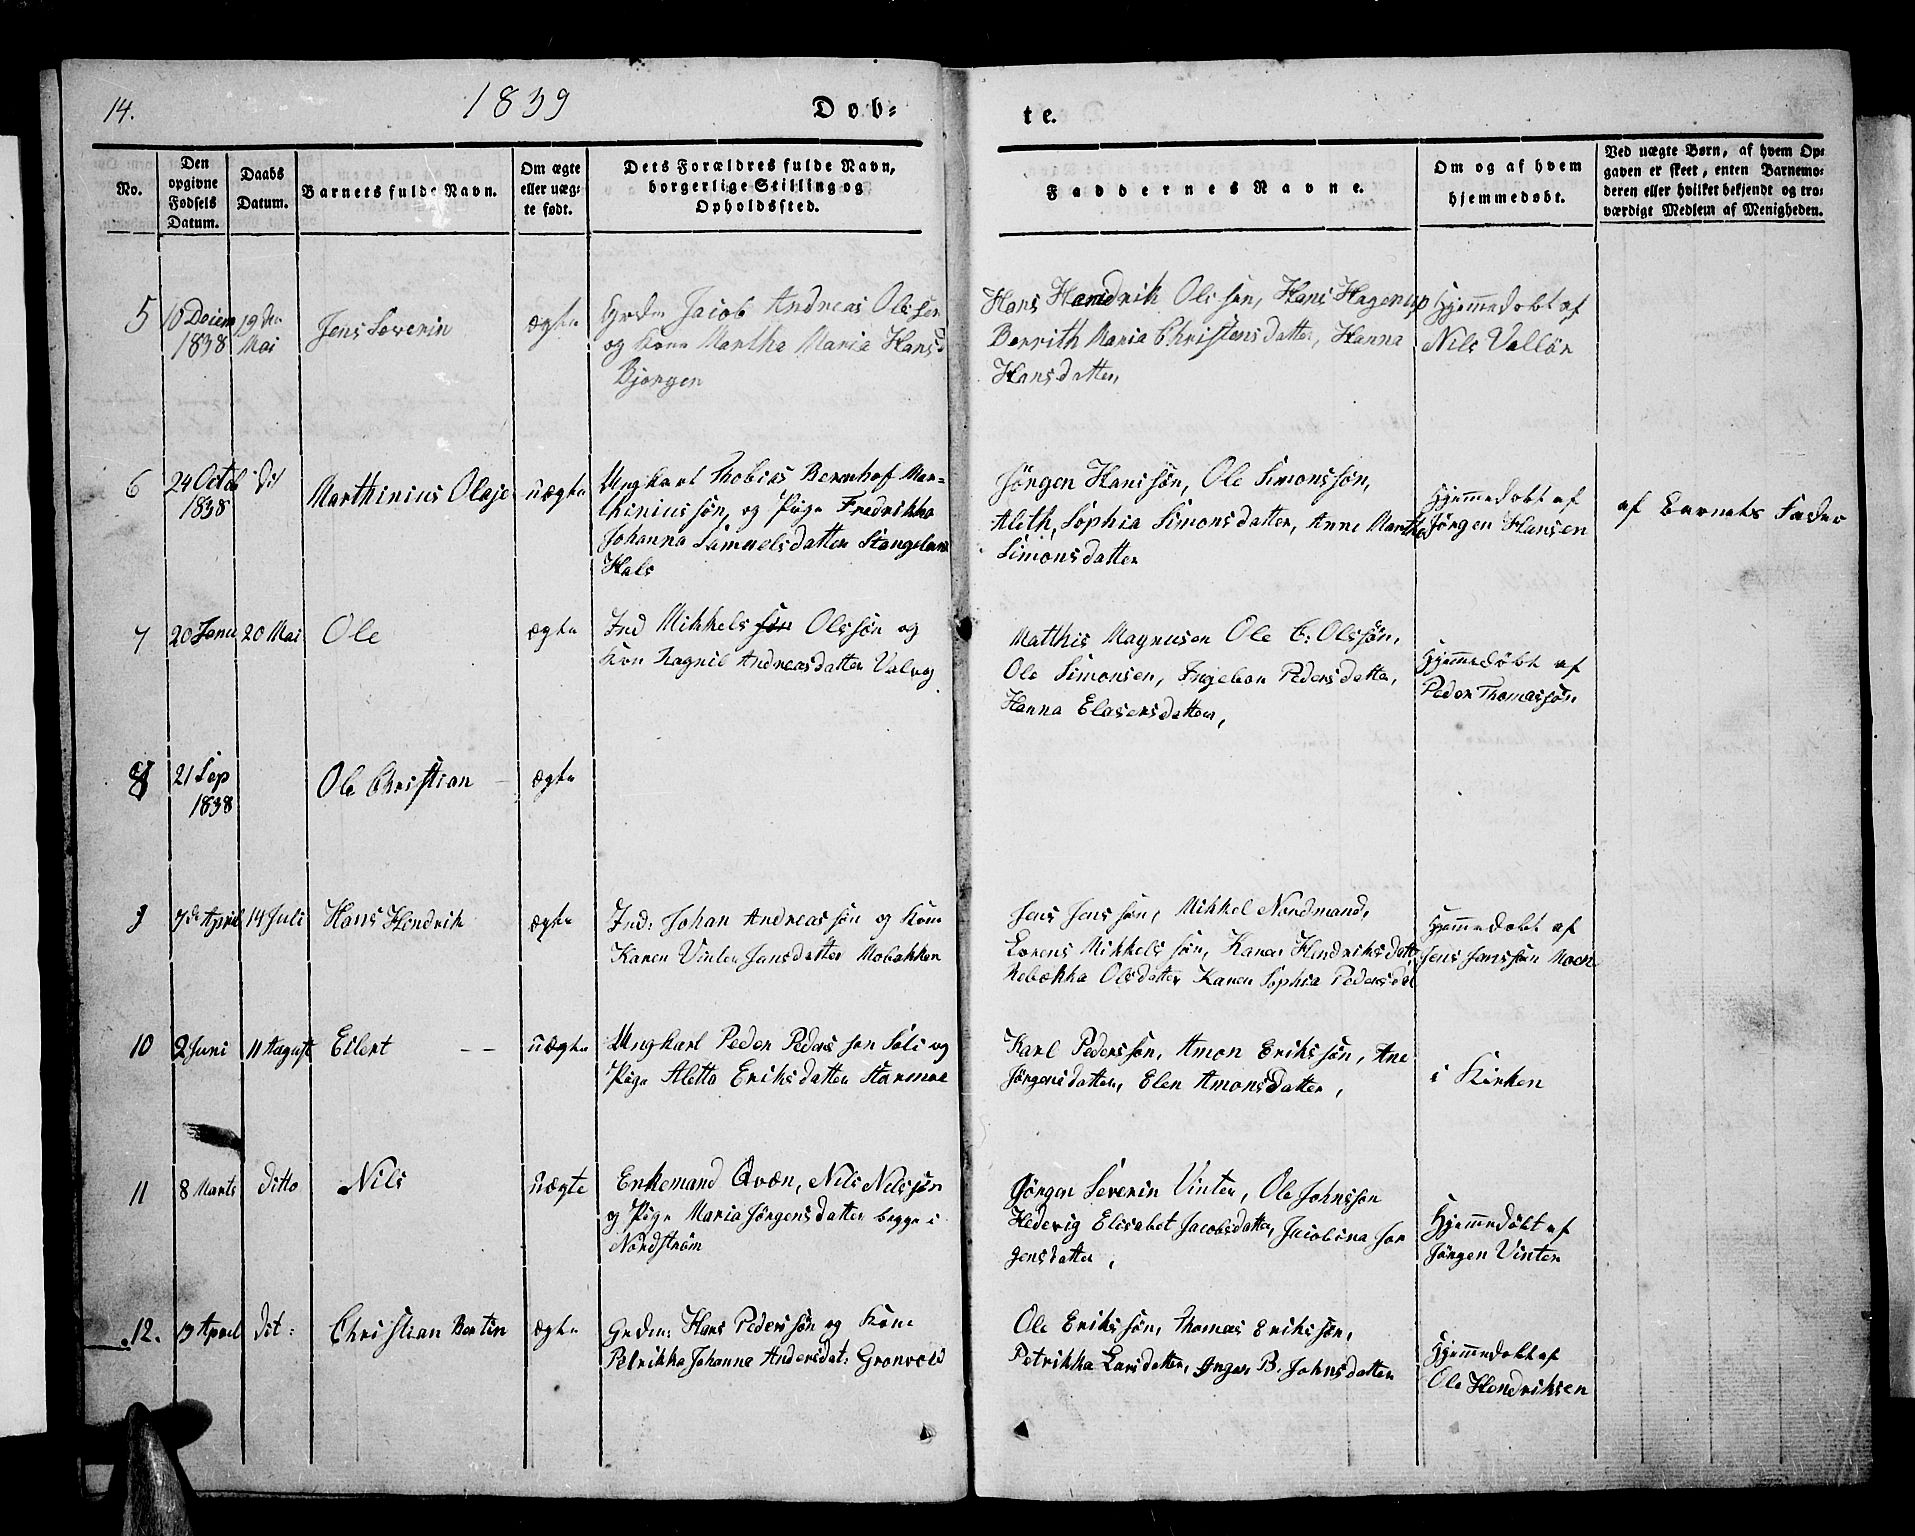 14.
1839
Døb-
te.
No.
Den opgivne Fødsels Datum.
Daabs Datum.
Barnets fulde Navn.
Om ægte eller uæg- te født.
Dets Forældres fulde Navn, borgerlige Stilling og Opholdssted.
Faddernes Navne.
Om og af hvem hjemmedøbt.
Ved uægte Børn, af hvem Op- gaven er skeet, enten Barnemo- deren eller hvilket bekjendt og tro- værdigt Medlem af Menigheden.
5
1838
19 den Mai
Jens Severin
ægte
Jacob Andreas Olssen
og Kone Martha Maria Hansd
Bjorgen
Hans Hendrik Olsson, Hans Hagerup
Berrith Maria Christensdatter, Hanna
Hansdatter,
Hjemmedobt af
Nils Vallør
6
24 Octob
1838
dit
Marthinius Olaje
uægte
Ungkarl Thobias Bernhof Mar-
thiniussøn, og Pige Fredrikka
Johanna Samuelsdatter
Hals
Jørgen Hanssøn, Ole Simonssøn,
Aleth, Sophia Simonsdatter, Anne Martha
Simonsdatter
Hjemmedobt af
Jørgen Hansen
af Barnets Fader
7
20 Janu
20 Mai
Ole
ægte
Ind Mikkels søn Olssøn og
Kon Ragnil Andreasdatter Valvog
Matthis Magnusen Ole C: Olssøn,
Ole Simonsen, Ingebor Pedersdatter,
Hanna Elasersdatter,
Hjemmedøbt af
Peder Thomassøn.
8
21 Sep
1838
Ole Christian
ægte
9
7de April
14 Juli
Hans Hendrik
ægte
Ind: Johan Andreassøn og Kone
Karen Vinter Jansdatter Mobakken
Jens Jenssøn, Mikkel Nordmand,
Lorens Mikkelssøn, Karen Hendriksdatt
Rebækka Olsdatter Karen Sophia Pedersdat
Hjemmedobt af
Jens Jenssøn Moen
10
2 Juni
11 August
Eilert
uægte
Ungkarl Peder Pederssøn Sali og
Pige Aletta Eriksdatter
Karl Pederssøn, Amon Erikssøn, Ane
Jørgensdatter, Elen Amonsdatter,
i Kirken
11
8 Marts
ditto
Nils
uægte
Enkemand Qvæn, Nils Nilssøn
og Pige Maria Jørgensdatter begge i
Nordstrøm
Jørgen Severin Vinter, Ole Johnssøn
Hedevig Elisabet Jacobsdatter, Jacobina Jør
gensdatter,
Hjemmedøbt af
Jørgen Vinter
12.
13 April
dit:
Christian Bertin
ægte
Grdm: Hans Pederssøn og Kone
Petrikka Johanna Andersdat: Gronvold
Ole Erikssøn, Thomas Erikssøn,
Petrikka Larsdatter, Inger B. Johnsdatter
Hjemmedobt af
Ole Hendriksen